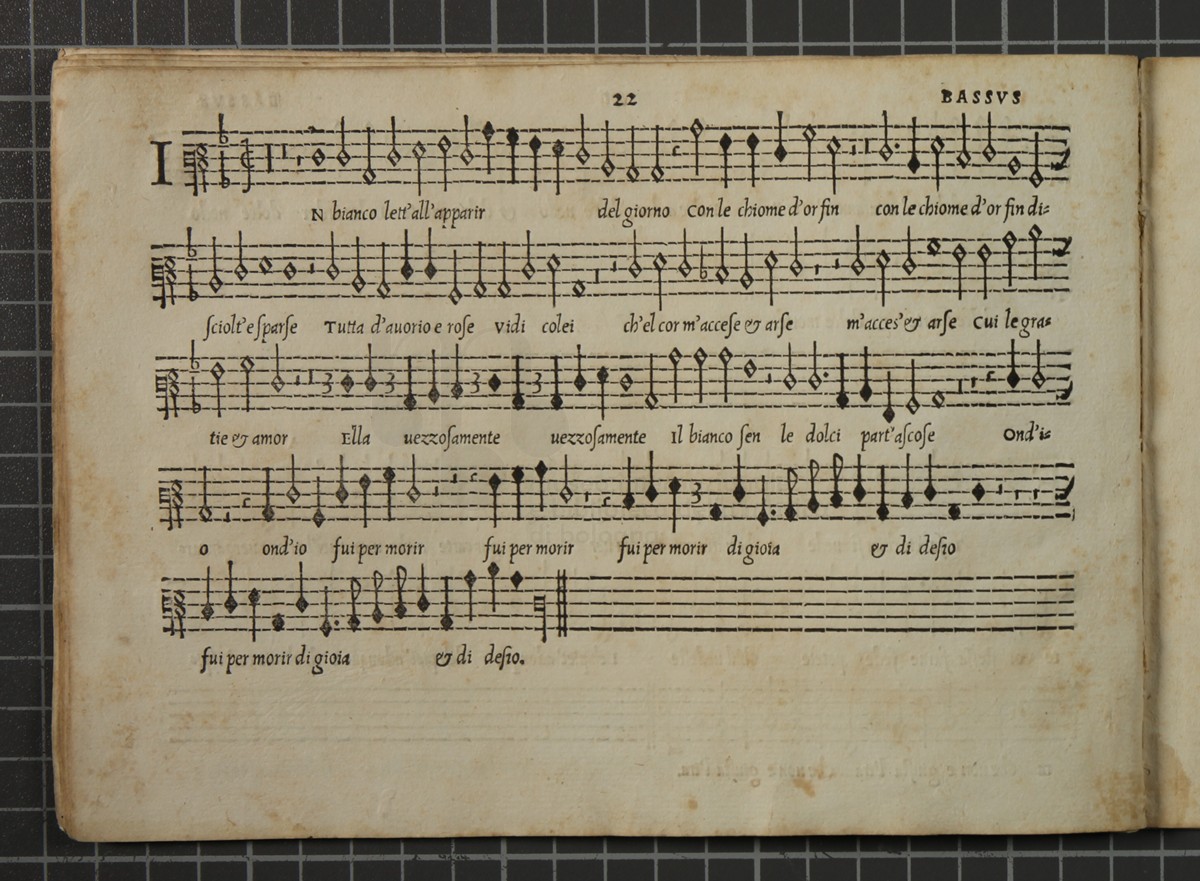 22 BASSVS
IN bianco lett'all'apparir del giorno Con le chiome d'or fin con le chiome d'or fin di=
sciolt'e sparse Tutta d'auorio e rose Vidi colei ch'el cor m'accese & arse m'acces'& arse Cui le gra=
tie & amor Ella uezzosamente uezzosamente Il bianco sen le dolci part'ascose Ond'i=
o ond'io fui per morir fui per morir fui per morir di gioia & di desio
fui per morir di gioia & di desio.